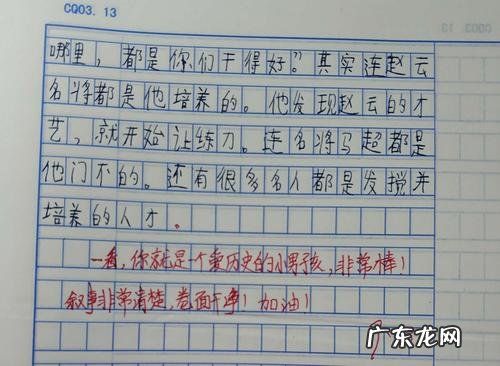 CQ03.13
哪里，都是你们干得好。”其实连赵云
名将都是他培养的。他发现赵云的才
艺，就开始让练刀。连名将马超都是
他门下的。还有很多名人都是发搅并
培养的人才。
一看，你就是一个爱历史的小男孩，非常棒！
叙事非常清楚，卷面干净！加油！
广东龙网